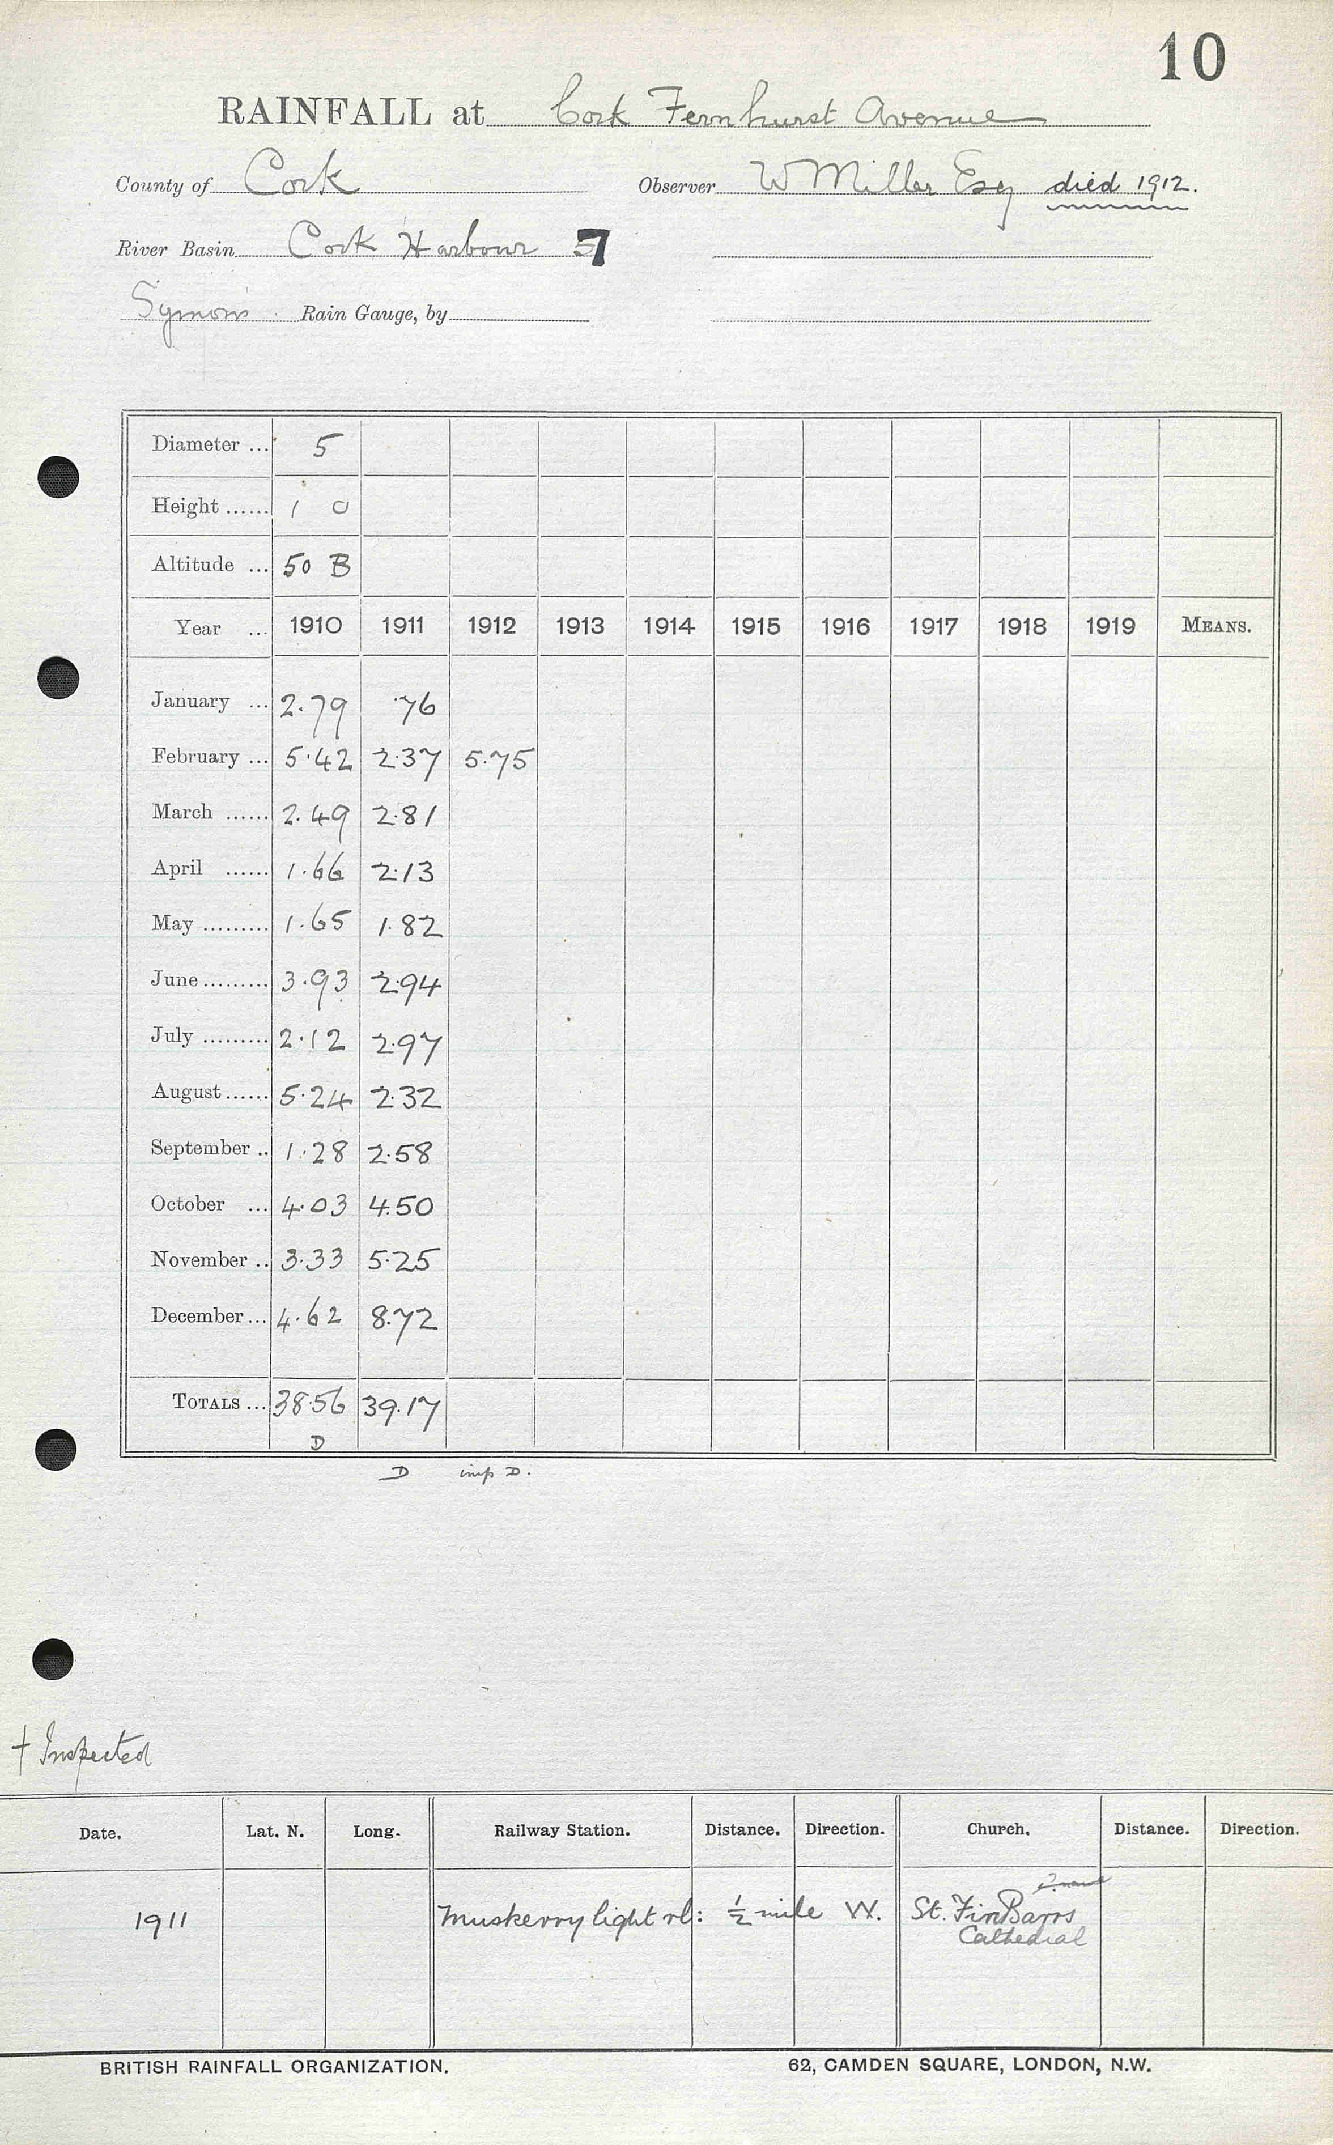 10
RAINFALL at Cork Fernhurst Avenue
County of Cork Observer W Miller Esq died 1912.
River Basin Cork Harbour 7
Symon's Rain Gauge, by
Diameter ... 5
Height ...... 1 0
Altitude ... 50 B
Year ... 1910 1911 1912 1913 1914 1915 1916 1917 1918 1919 MEANS.
January ... 2.79 .76
February ... 5.42 2.37 5.75
March ...... 2.49 2.81
April ...... 1.66 2.13
May ......... 1.65 1.82
June ......... 3.93 2.94
July ......... 2.12 2.97
August ...... 5.24 2.32
September .. 1.28 2.58
October ... 4.03 4.50
November .. 3.33 5.25
December ... 4.62 8.72
TOTALS ... 38.56 39.17
D
D imp D.
† Inspected
Date. Lat. N. Long. Railway Station. Distance. Direction. Church. Distance. Direction.
1911 Muskerry light rl: ½ mile W. St. Fin Barrs
Cathedral
BRITISH RAINFALL ORGANIZATION. 62, CAMDEN SQUARE, LONDON, N.W.